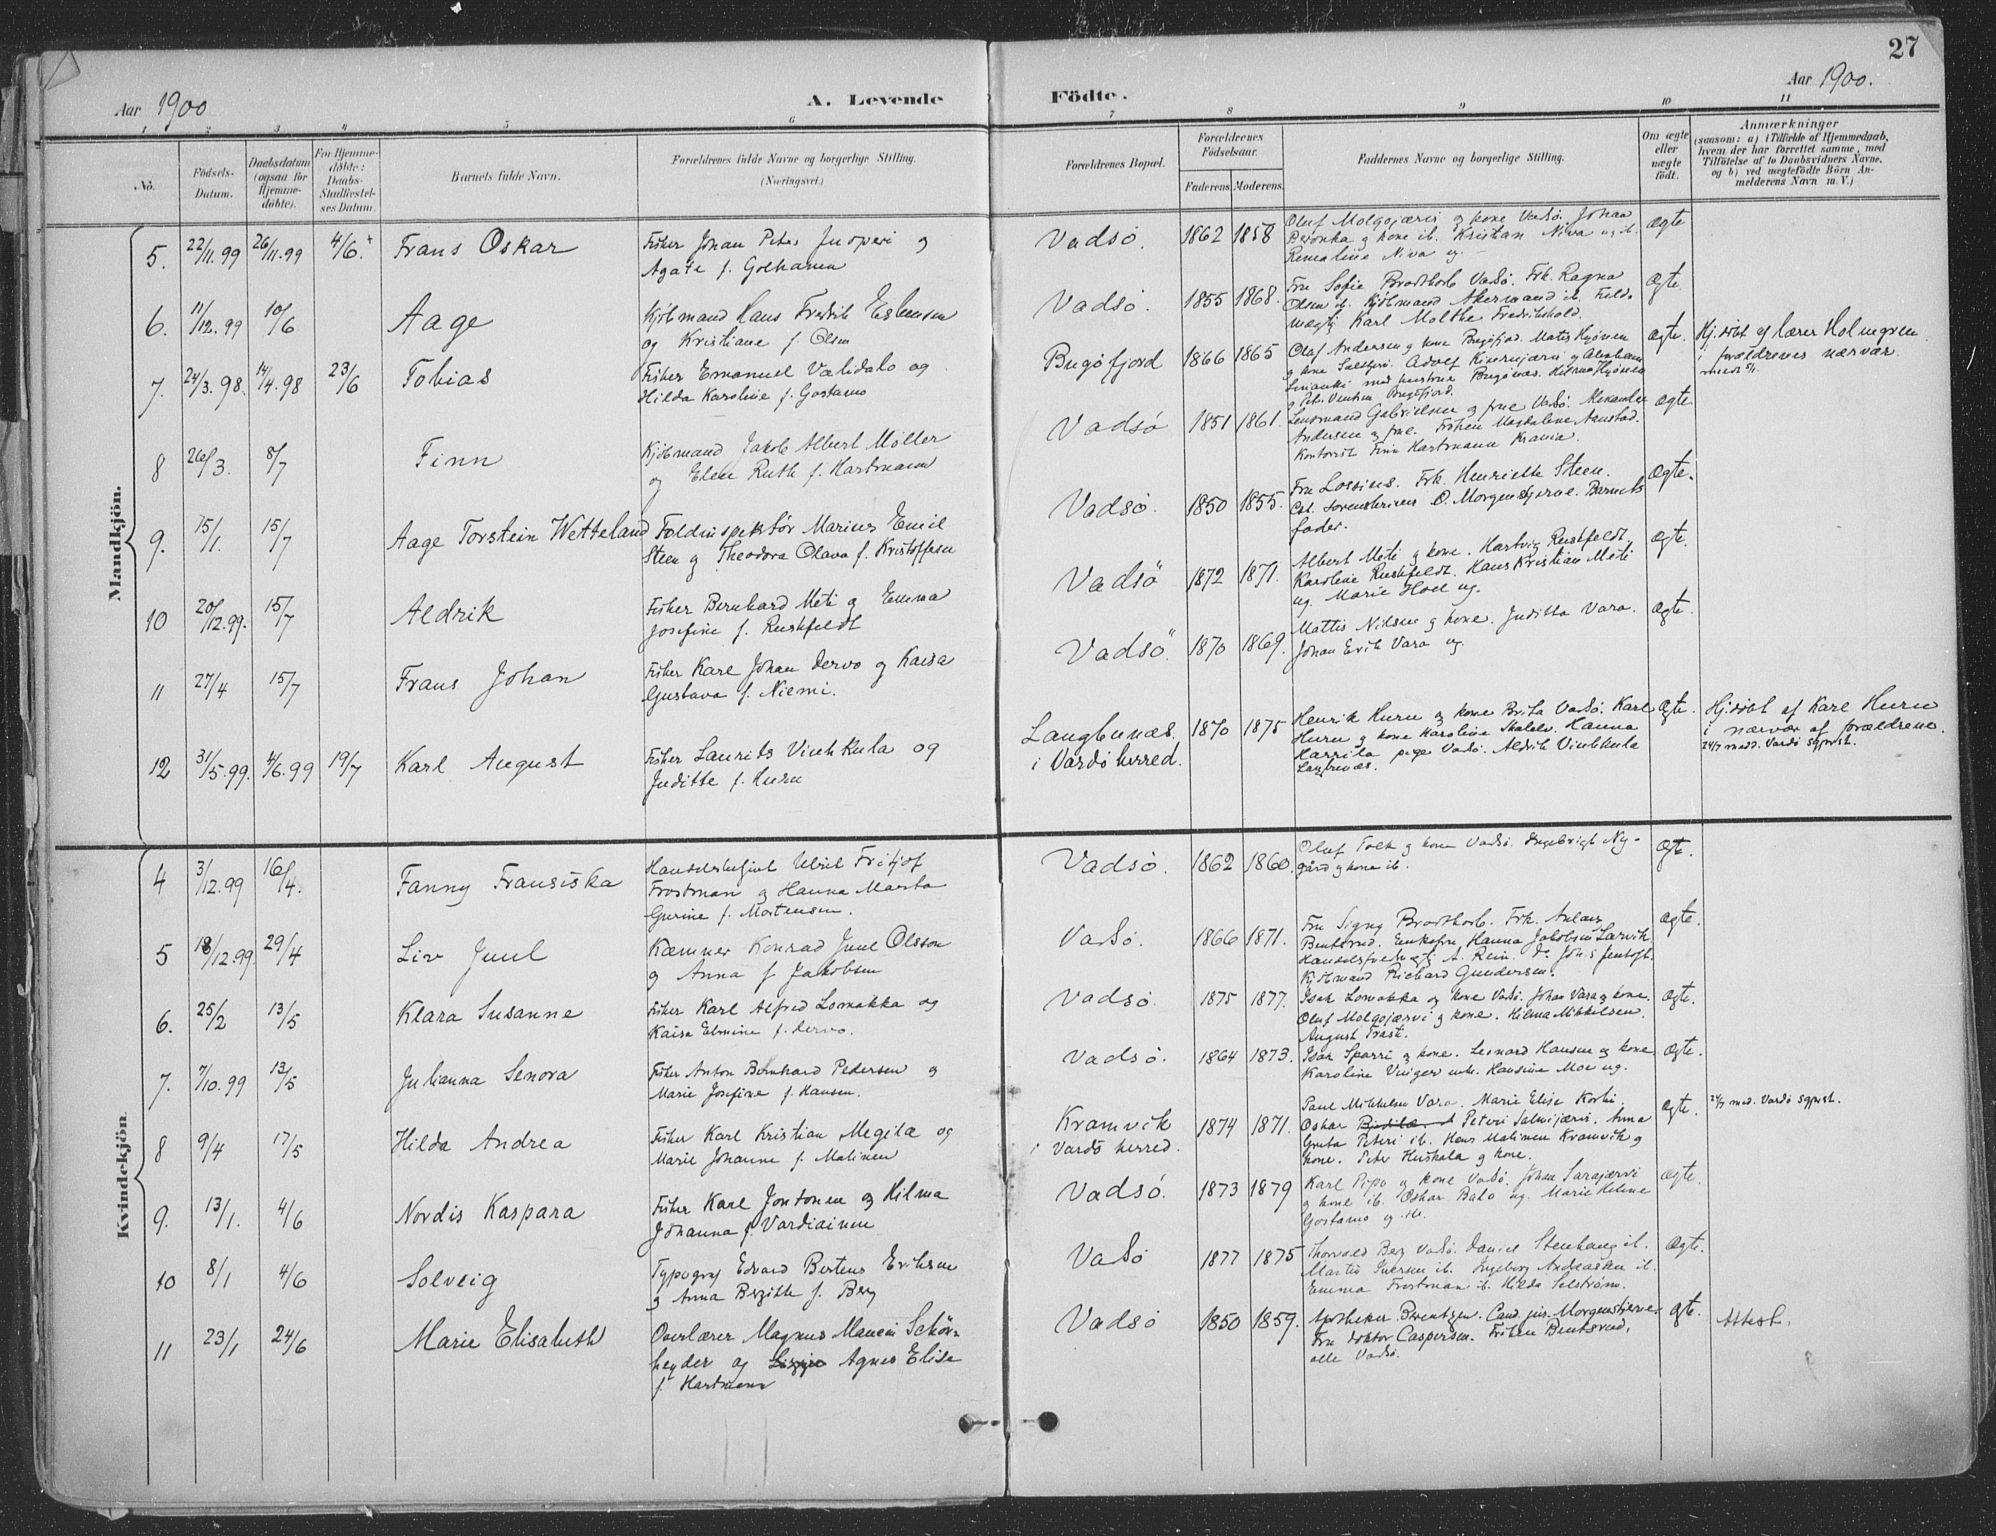 27
Aar 1900
A. Levende
Födte.
Aar 1900.
1 2 3 4 5 6 7 8 9 10 11
No.
Födsels-Datum.
Daabsdatum (ogsaa for Hjemme-döbte).
For Hjemme-döbte: Daabs-Stadfæstel-ses Datum.
Barnets fulde Navn.
Forældrenes fulde Navne og borgerlige Stilling.
(Næringsvei.)
Forældrenes Bopæl.
Forældrenes Födselsaar.
Faderens. Moderens.
Faddernes Navne og borgerlige Stilling.
Om ægte eller uægte födt.
Anmærkninger
(saasom: a) i Tilfælde af Hjemmedaab, hvem der har forrettet samme, med Tilföielse af to Daabsvidners Navne, og b) ved uægtefödte Börn An-melderens Navn m. V.)
Mandkjön.
5. 22/11.99 26/11.99 4/6. Frans Oskar
Fisker Johan Peter Junperi og
Agate f. Golhamn
Vadsø. 1862 1858
Oluf Molgojærvi og kone Vadsø. Johan
og kone ib. Kristian Niva ug. ib.
Niva ug.
ægte
6. 11/12.99 10/6 Aage
Kjöbmand Hans Fredrik Esbensen
og Kristiane f. Olsen
Vadsø. 1855 1868.
Fru Sofie Brodtkorb Vadsø. Frk. Ragna
Olsen ib. Kjöbmand Akermand ib. Fuld-
mægtig Karl Molthe Fredrikshald.
ægte
7. 24/3.98. 14/4.98 23/6 Tobias
Fisker Emanuel Vælidalo og
Hilda Karoline f. Gostamo
Bugöfjord 1866 1865
Olaf Andersen og kone Bugöfjord. Matis
og kone Adolf og Abraham
med hustru Bugönæs.
Bugöfjord.
ægte.
Hj.döbt af lærer Holmgren
i forældrenes nærvær.
8 26/3. 8/7 Finn
Kjöbmand Jakob Albert Möller
og Elen Ruth f. Hartmann
Vadsø 1851 1861.
Lensmand Gabrielsen og frue Vadsø.
Andersen og frue. Fröken Magdalene Aanstad.
Kontorist Finn Hartmann
ægte
9. 15/1. 15/7 Aage Torstein Wetteland
Toldinspektör Marius Emil
Steen og Theodora Olava f. Kristoffersen
Vadsø. 1850 1855.
Fru Lossius. Frk. Henriette Steen.
O. Morgenstjerne. Barnets
fader.
Ægte.
10 20/12.99. 15/7 Aldrik
Fisker Bernhard Meti og Emma
Josefine f. Ruskfeldt
Vadsø 1872 1871.
Albert Meti og kone. Hartvig Ruskfeldt.
Karoline Ruskfeldt. Hans Kristian Meti
ug. Marie Hoel ug.
ægte.
11 27/4 15/7 Frans Johan
Fisker Karl Johan Dervo og Kaisa
Gustava f. Niemi.
Vadsø. 1870 1869.
Mattis Nilsen og kone. Juditta Vara.
Johan Erik Vara ug
Ægte.
12 31/5.99. 4/6.99 19/7 Karl August
Fisker Laurits Vinikkula og
Juditte f. Huru
Langbunæs.
i Vardö herred.
1870 1875
Henrik Huru og kone Brita Vadsø. Karl
Huru og kone Karoline Hanna
Harrila pige Vadsø. Aldrik Vinikkula
Langbunæs.
Ægte.
Hj.döbt af Karl Huru
i nærvær af forældrene.
24/7 med. Vardö sgprst.
Kvindekjön
4 3/12.99 16/4. Fanny Fransiska
Fritjof
Frostman og Hanna Marta
Gurine f. Mortensen.
Vadsø. 1862 1860.
Oluf Falk og kone Vadsø. Ingebrigt Ny-
gård og kone ib.
Ægte.
5 18/12.99. 29/4 Liv Juul
Kæmner Konrad Juul Olsson
og Anna f. Jakobsen
Vadsø. 1866 1871.
Fru Signy Brodtkorb. Frk.
Bentsrud. Enkefru Hanna Jakobsen Larvik.
A. Rein.
Kjöbmand Richard Gundersen.
ægte.
6. 25/2 13/5 Klara Susanne
Fisker Karl Alfred Lomakka og
Kaisa Elmine f. Dervo.
Vadsø. 1875 1877.
Isak Lomakka og kone Vadsø. Johan Vara og kone.
Oluf Molgojærvi og kone. Hilma Mikkelsen.
August Trast.
ægte.
7. 7/10.99 13/5 Julianna Senora
Fisker Anton Bernhard Pedersen og
Marie Josefine f. Hansen.
Vadsø. 1864 1873.
Isak Sparri og kone. Leonard Hansen og kone
Karoline Hansine Moe ug.
ægte.
8 9/4 17/5 Hilda Andrea
Fisker Karl Kristian Megila og
Marie Johanne f. Malinen
Kramvik
i Vardö herred.
1874 1871.
Paul Mikkelsen Vara. Marie Elise Korbi.
Oskar Peteri Salmijærvi. Anna
Greta Peteri ib. Hans Malinen Kramvik og
kone. Peter Huskala og kone.
ægte.
24/7 med. Vardö sgprst.
9. 13/1. 4/6 Nordis Kaspara
Fisker Karl Jontonen og Hilma
Johanna f. Vardiainen
Vadsø. 1873 1879
Karl Popo og kone Vadsø. Johan Sarajærvi
og kone ib. Oskar Balo ug. Marie Helene
Gostamo ug. ib.
ægte.
10 8/1 4/6 Solveig
Typograf Edvard Bertius Eriksen
og Anna Bergitte f. Berg
Vadsø 1877 1875
Thorvald Berg Vadsø. Daniel Stenhaug ib.
Martin Iversen ib. Ingeborg Andreasen ib.
Emma Frostman ib. Hilda Selström.
Ægte.
11 23/1 24/6 Marie Elisabeth
Overlærer Magnus Schön-
heyder og Lizzie Agnes Elise
f. Hartmann
Vadsø 1850 1859.
Apotheker Brentzen. Cand. jur. Morgenstjerne.
Fru doktor Caspersen. Fröken Bentsrud,
alle Vadsø.
ægte.
Attest.